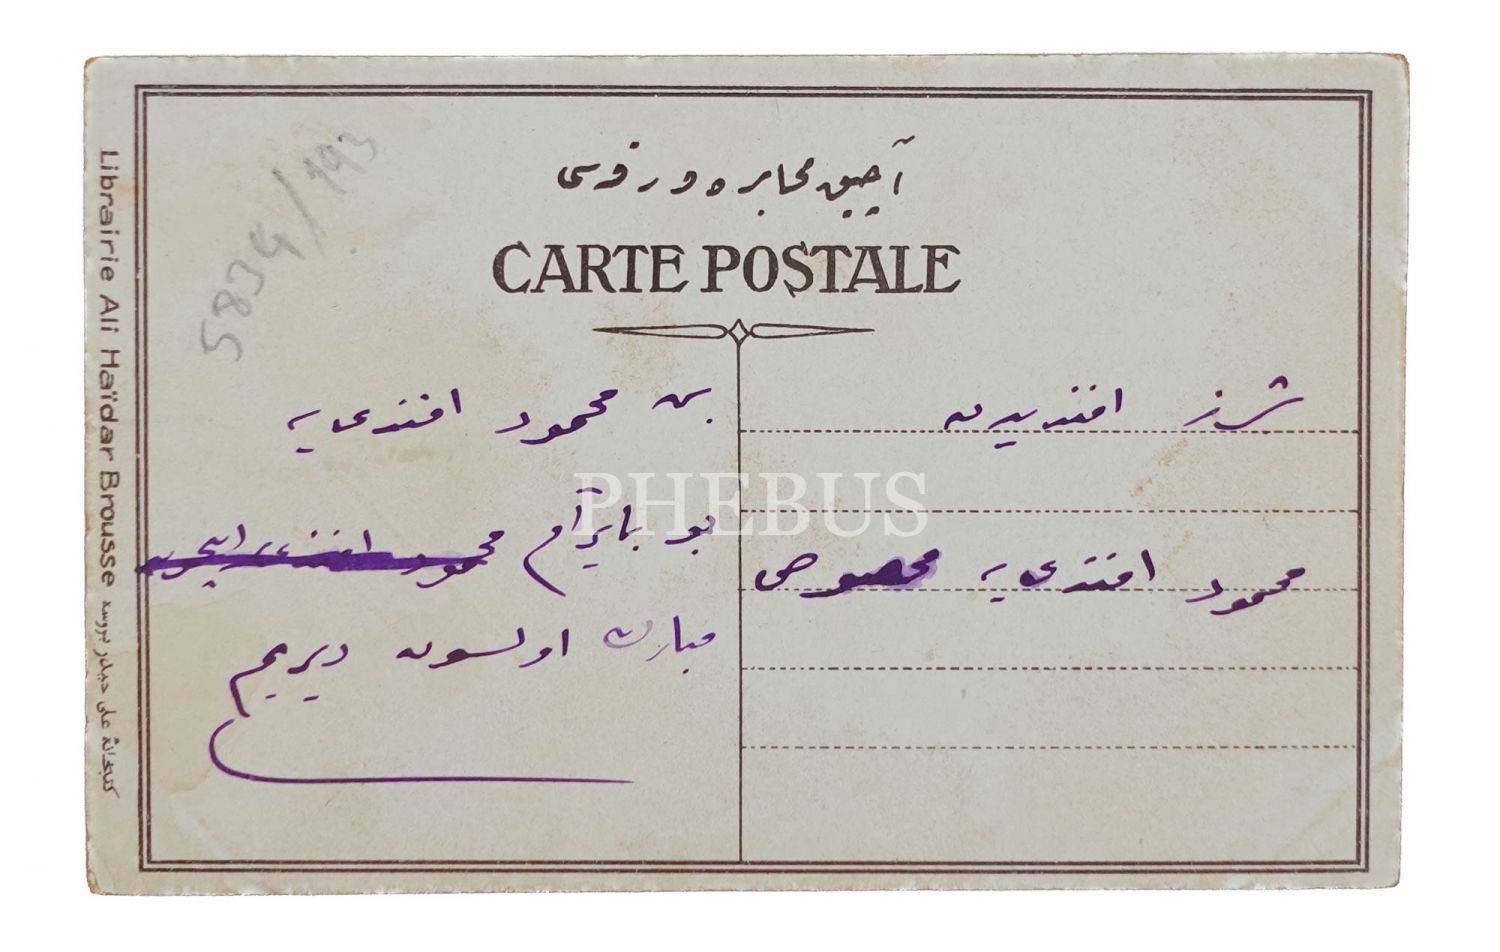 آچیق مخابره ورقه‌سی
CARTE POSTALE
5834/193
بن محمود افندی یه
بو بایرام محمود افندی ایچون
مبارك اولسون دیریم
افندیدن
محمود افندی یه مخصوص
Librairie Ali Haïdar Brousse كتبخانهٔ علی حیدر بروسه
PHEBUS